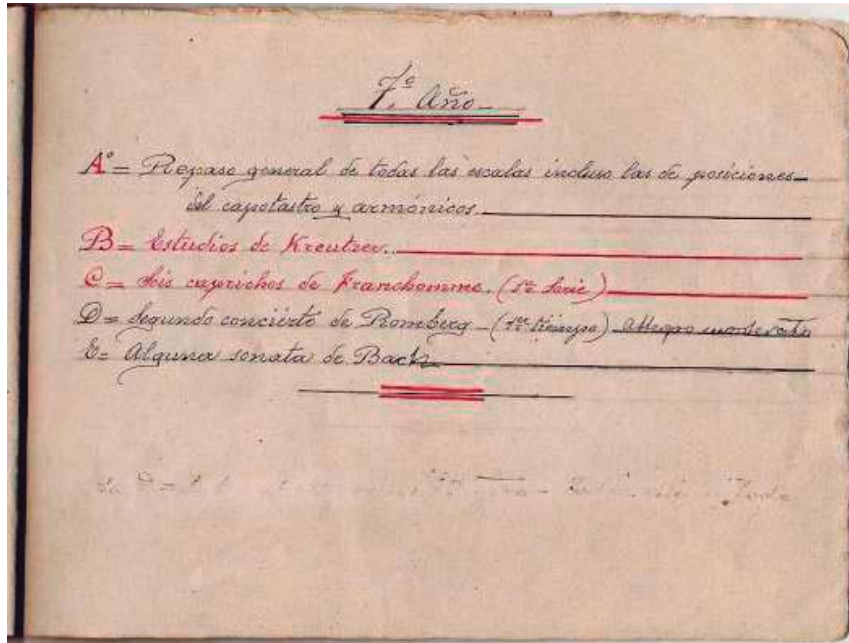 7º Año
Aº = Repaso general de todas las escalas incluso las de posiciones
del capotastro y armónicos.
B = Estudios de Kreutzer.
C = Seis caprichos de Franchomme. (1ª Serie)
D = Segundo concierto de Romberg - (1er tiempo) Allegro moderato
E = Alguna sonata de Bach